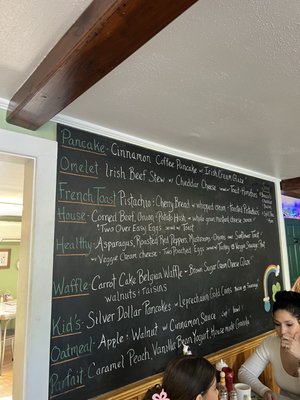 Pancake - Cinnamon Coffee Pancake w Irish Cream Glaze
Omelet Irish Beef Stew w Cheddar Cheese Toast - Homefries
French Toast Pistachio - Cherry Bread - w whipped cream - Toasted Pistachios
House - Corned Beef, Onion - Potato Hash - w whole grain mustard cheese sauce -
"Two Over Easy Eggs w Toast
Healthy - Asparagus, Roasted Red Peppers, Mushrooms - Onions w Sunflower Toast
w Veggie Cream cheese - Two Poached Eggs w Turkey Sausage
Waffle - Carrot Cake Belgian Waffle - Brown Sugar Cream Cheese Glaze
walnuts - raisins
Kid's - Silver Dollar Pancakes w Leprechaun Gold Coins
Oatmeal - Apple - Walnut w Cinnamon Sauce cup bowl
Parfait Caramel Peach, Vanilla Bean Yogurt House made Granola